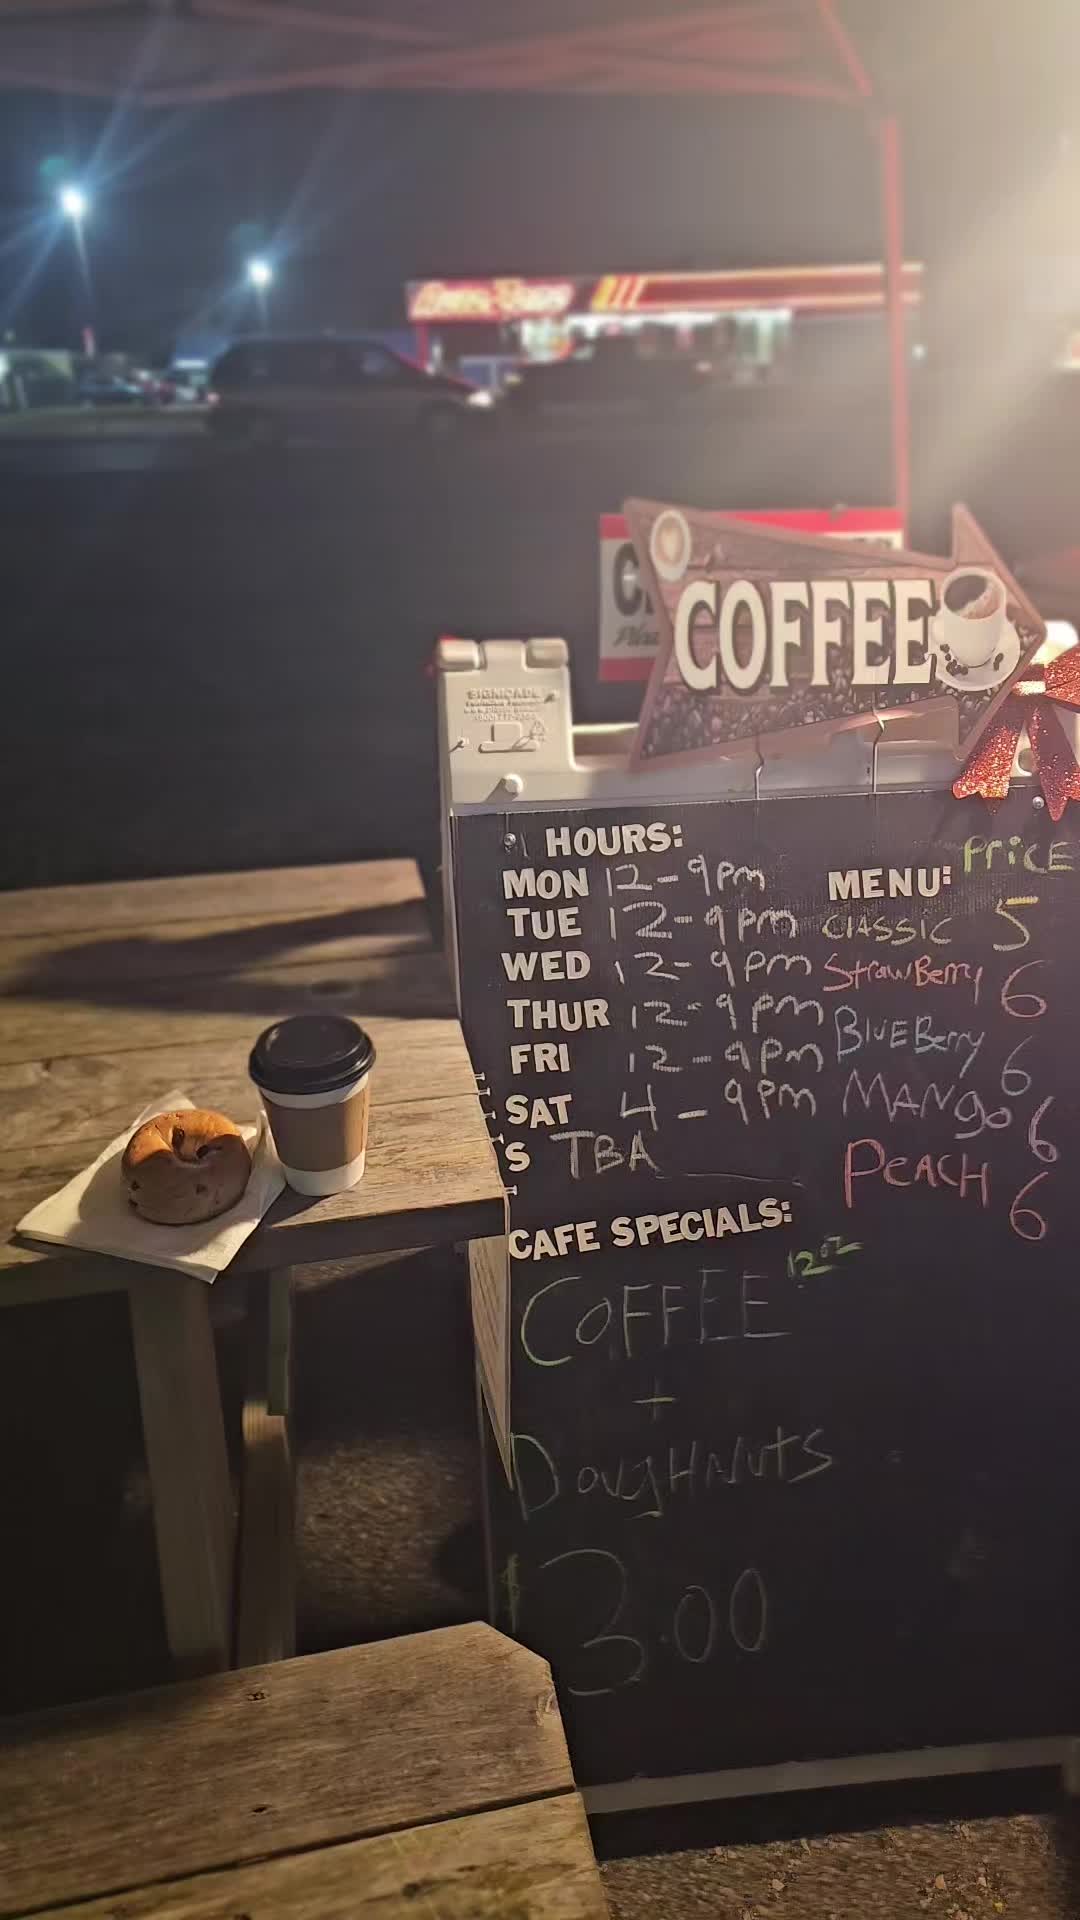 COFFEE
SIGNICADE
HOURS:
MON 12-9pm
TUE 12-9pm
WED 12-9pm
THUR 12-9pm
FRI 12-9pm
SAT 4-9pm
S TBA
MENU: PRiCE
CLASSIC 5
StrawBerry 6
BLUEBerry 6
MANgo 6
PEACH 6
CAFE SPECIALS:
COFFEE 12oz
+
DougHNuts
$3.00